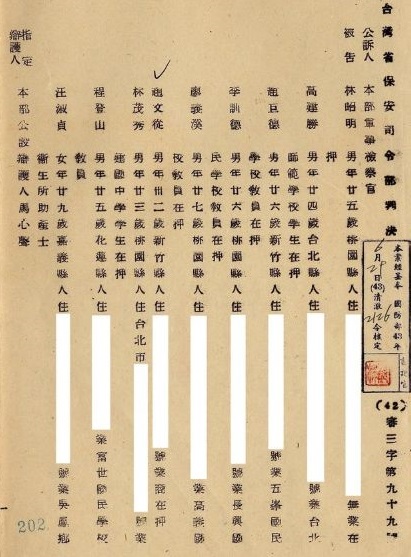 台灣省保安司令部判決 (42)審三字第九十九號
本案經呈奉 國防部43年
6月29日(43)清澈
2126令核定
公訴人 本部軍事檢察官
被告 林昭明 男年廿五歲桃園縣人住 無業在
押
高建勝 男年廿四歲台北縣人住 號業台北
師範學校學生在押
趙巨德 男年廿六歲新竹縣人住 號業五峯國民
學校教員在押
李訓德 男年廿六歲桃園縣人住 號業長興國
民學校教員在押
廖義溪 男年廿七歲桃園縣人住 號業高義國
校教員在押
趙文從 男年卅二歲新竹縣人住 號業商在押
林茂秀 男年廿三歲桃園縣人住台北市 號業
建國中學學生在押
程登山 男年廿五歲花蓮縣人住 業富世國民學校
教員
汪淑貞 女年廿九歲嘉義縣人住 號業吳鳳鄉
衛生所助產士
指定辯護人 本部公設辯護人馬心聲
202